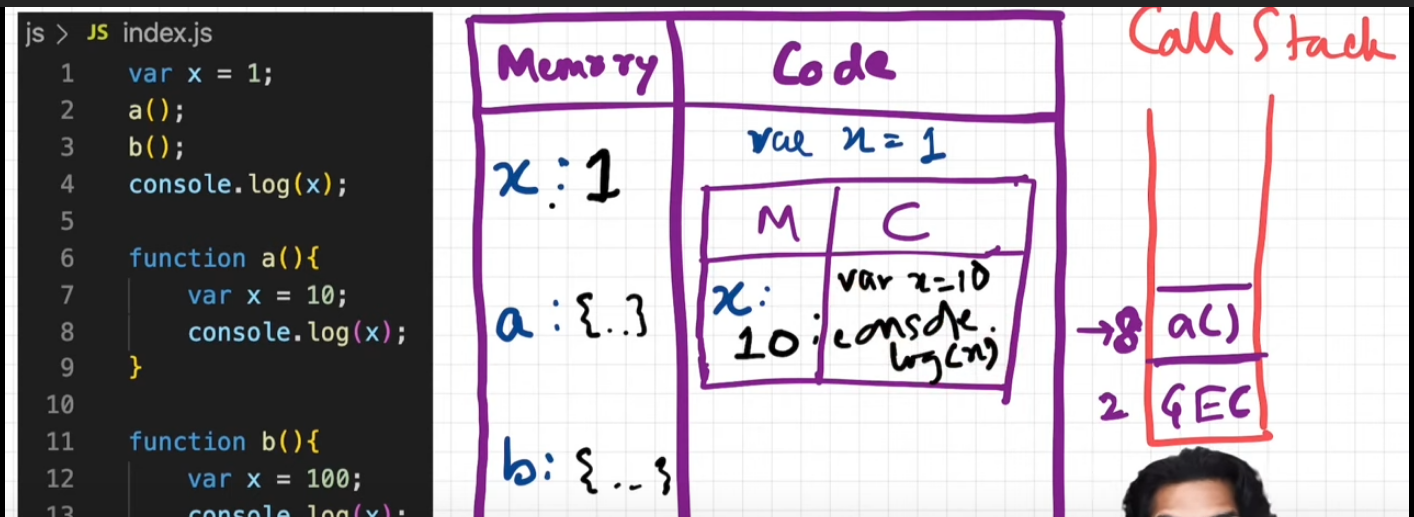 js > JS index.js
1 var x = 1;
2 a();
3 b();
4 console.log(x);
5
6 function a(){
7 var x = 10;
8 console.log(x);
9 }
10
11 function b(){
12 var x = 100;
13 console.log(x);
Memory Code
x : 1
a : {..}
b: {...}
var x = 1
M C
x:
10
var x=10
; console.
log(x)
Call Stack
→8 a()
2 GEC